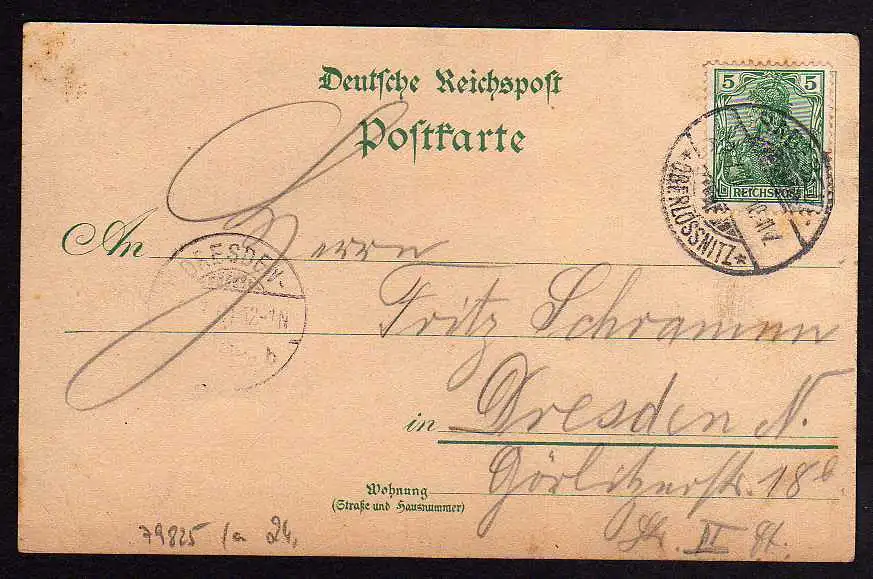 Deutsche Reichspost
Postkarte
5 5
REICHSPOST
* OBERLÖSSNITZ *
An Herrn
DRESDEN-
12-1N
Fritz Schramm
in Dresden N.
Görlitzerstr. 18b
Wohnung
(Straße und Hausnummer)
II
79825
24,